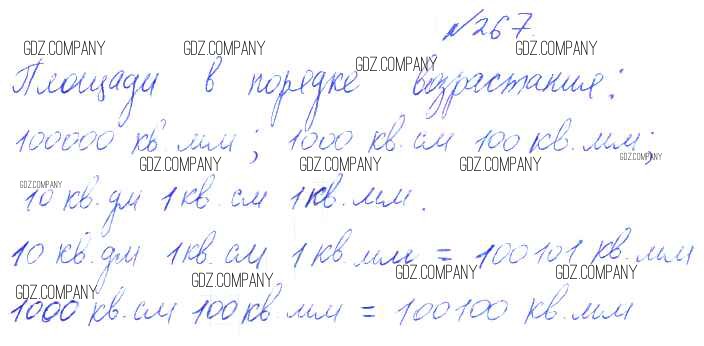 №267.
GDZ.COMPANY GDZ.COMPANY GDZ.COMPANY
GDZ.COMPANY
Площади в порядке возрастания:
100000 кв мм; 1000 кв.см 100 кв.мм;
GDZ.COMPANY GDZ.COMPANY GDZ.COMPANY GDZ.COMPANY
GDZ.COMPANY
10 кв.дм 1 кв.см 1 кв.мм.
10 кв.дм 1 кв.см 1 кв мм = 100101 кв.мм
GDZ.COMPANY GDZ.COMPANY GDZ.COMPANY GDZ.COMPANY
1000 кв.см 100 кв.мм = 100100 кв.мм